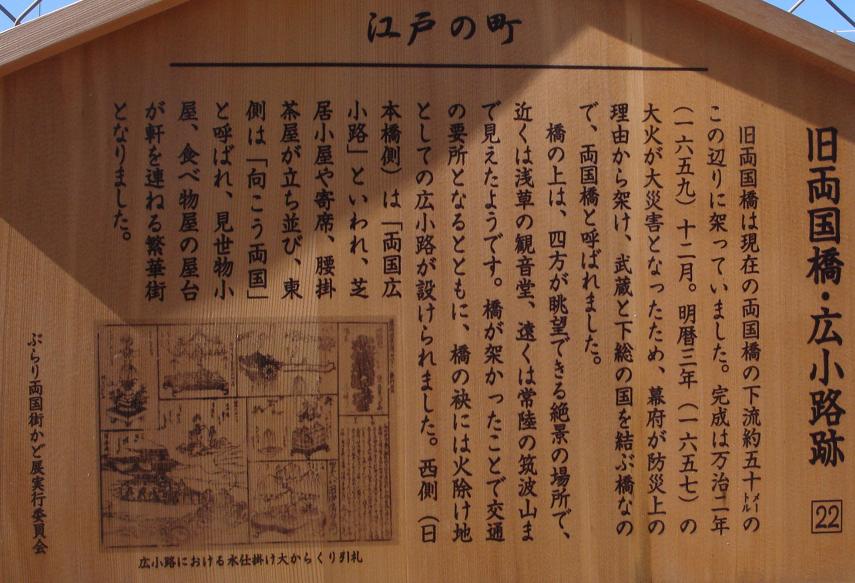 江戸の町
旧両国橋・広小路跡 22
旧両国橋は現在の両国橋の下流約五十㍍の
この辺りに架っていました。完成は万治二年
（一六五九）十二月。明暦三年（一六五七）の
大火が大災害となったため、幕府が防災上の
理由から架け、武蔵と下総の国を結ぶ橋なの
で、両国橋と呼ばれました。
橋の上は、四方が眺望できる絶景の場所で、
近くは浅草の観音堂、遠くは常陸の筑波山ま
で見えたようです。橋が架かったことで交通
の要所となるとともに、橋の袂には火除け地
としての広小路が設けられました。西側（日
本橋側）は「両国広
小路」といわれ、芝
居小屋や寄席、腰掛
茶屋が立ち並び、東
側は「向こう両国」
と呼ばれ、見世物小
屋、食べ物屋の屋台
が軒を連ねる繁華街
となりました。
広小路における水仕掛け大からくり引札
ぶらり両国街かど展実行委員会